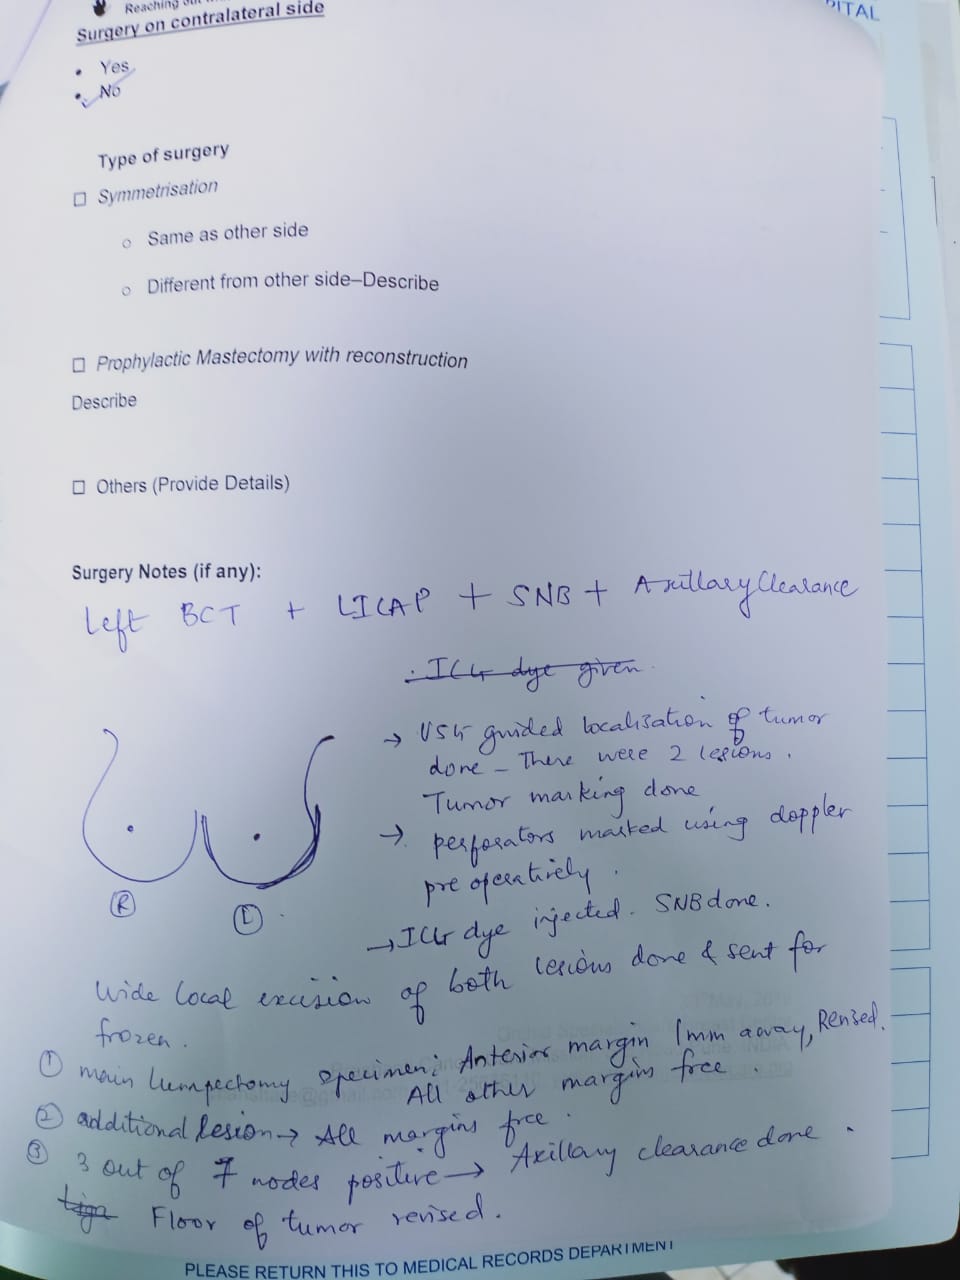 Reaching
PITAL
Surgery on contralateral side
• Yes
• No
Type of surgery
□ Symmetrisation
o Same as other side
o Different from other side–Describe
□ Prophylactic Mastectomy with reconstruction
Describe
□ Others (Provide Details)
Surgery Notes (if any):
Left BCT + LICAP + SNB + Axillary Clearance
ICG dye given
→ USG guided localisation of tumor
done – There were 2 lesions.
Tumor marking done
→ perforators marked using doppler
pre operatively.
→ ICG dye injected. SNB done.
R
L
Wide local excision of both lesions done & sent for
frozen.
① main lumpectomy specimen; Anterior margin 1mm away, Revised.
All other margins free.
② additional lesion → All margins free.
③ 3 out of 7 nodes positive → Axillary clearance done.
Floor of tumor revised.
PLEASE RETURN THIS TO MEDICAL RECORDS DEPARTMENT